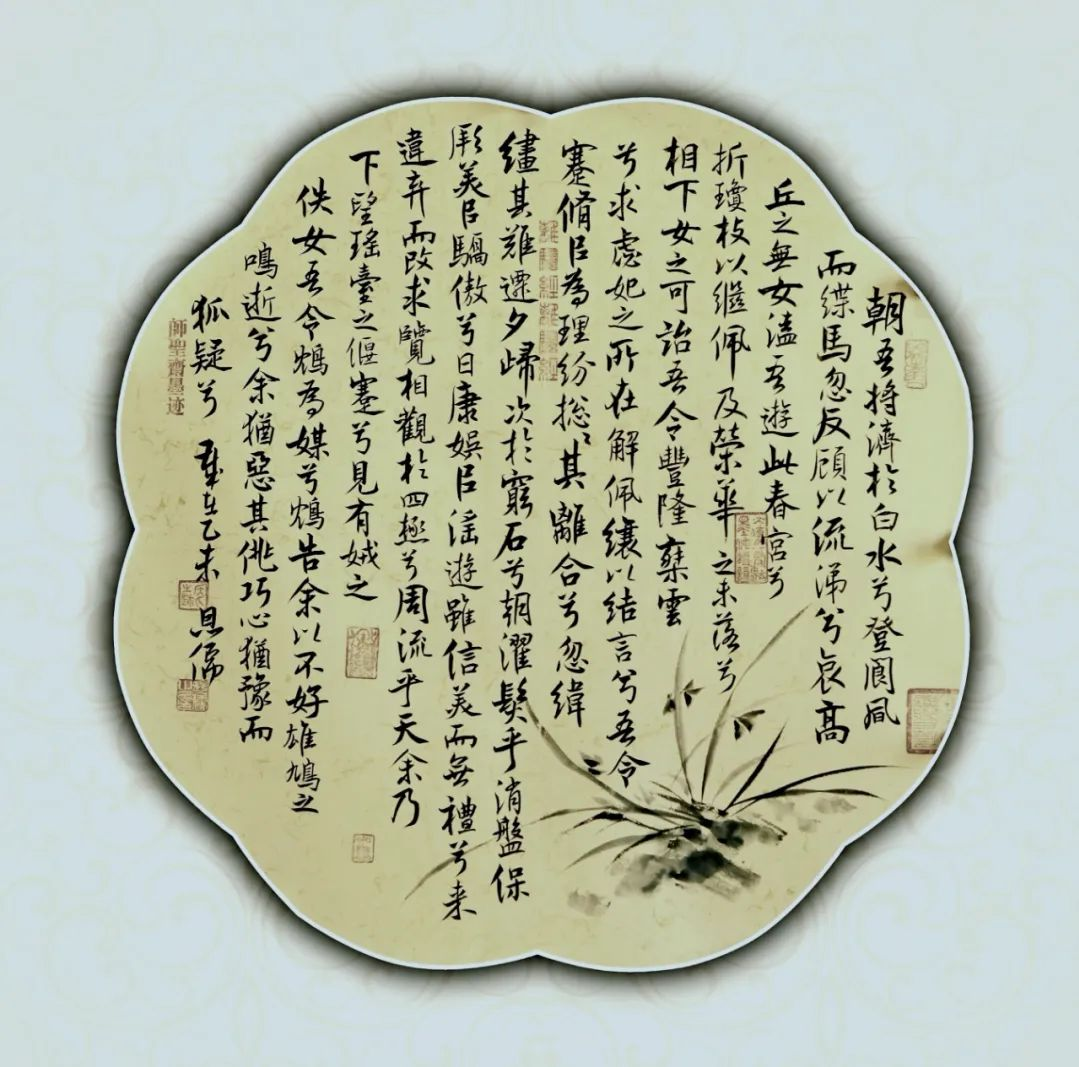 朝吾將濟於白水兮登閬風
而緤馬忽反顧以流涕兮哀高
丘之無女溘吾遊此春宮兮
折瓊枝以繼佩及榮華之未落兮
相下女之可詒吾令豐隆椉雲
兮求虙妃之所在解佩纕以結言兮吾令
蹇脩㠯為理紛緫緫其離合兮忽緯
繣其難遷夕歸次於窮石兮朝濯髮乎洧盤保
厥美㠯驕傲兮日康娛㠯淫遊雖信美而無禮兮来
違弃而改求覽相觀於四極兮周流乎天余乃
下望瑤臺之偃蹇兮見有娀之
佚女吾令鴆為媒兮鴆告余以不好雄鳩之
鳴逝兮余猶惡其佻巧心猶豫而
狐疑兮 歲在乙未
師聖齋墨迹